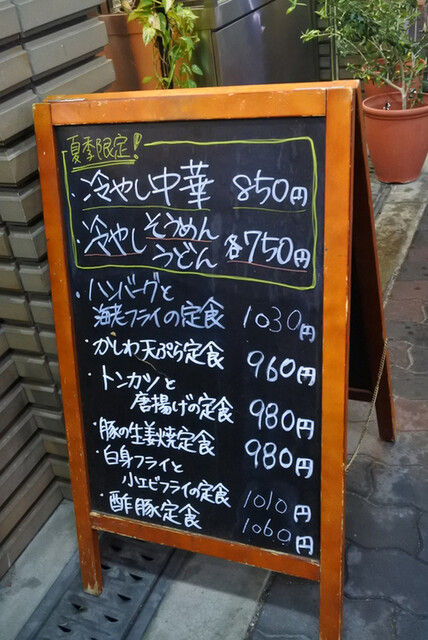 夏季限定!
・冷やし中華 850円
・冷やしそうめん
うどん 各750円
・ハンバーグと
海老フライの定食 1030円
・かしわ天ぷら定食 960円
・トンカツと
唐揚げの定食 980円
・豚の生姜焼定食 980円
・白身フライと
小エビフライの定食 1010円
・酢豚定食 1060円